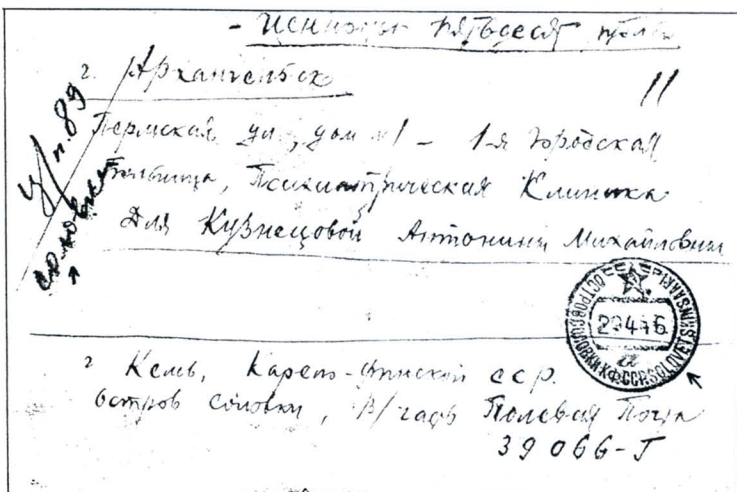 пятьдесят
г. Архангельск
11
Пермская ул, дом №1 – 1-я городская
больница, Психиатрическая Клиника
Для Кузнецовой Антонины Михайловны
ц/п. 89
соловки
ОСТРОВ СОЛОВКИ К.Ф.ССР. SOLOVETSKI
29 4 46
а
г Кемь, Карело-финской сср.
остров соловки, В/часть Полевая Почта
39066-Г